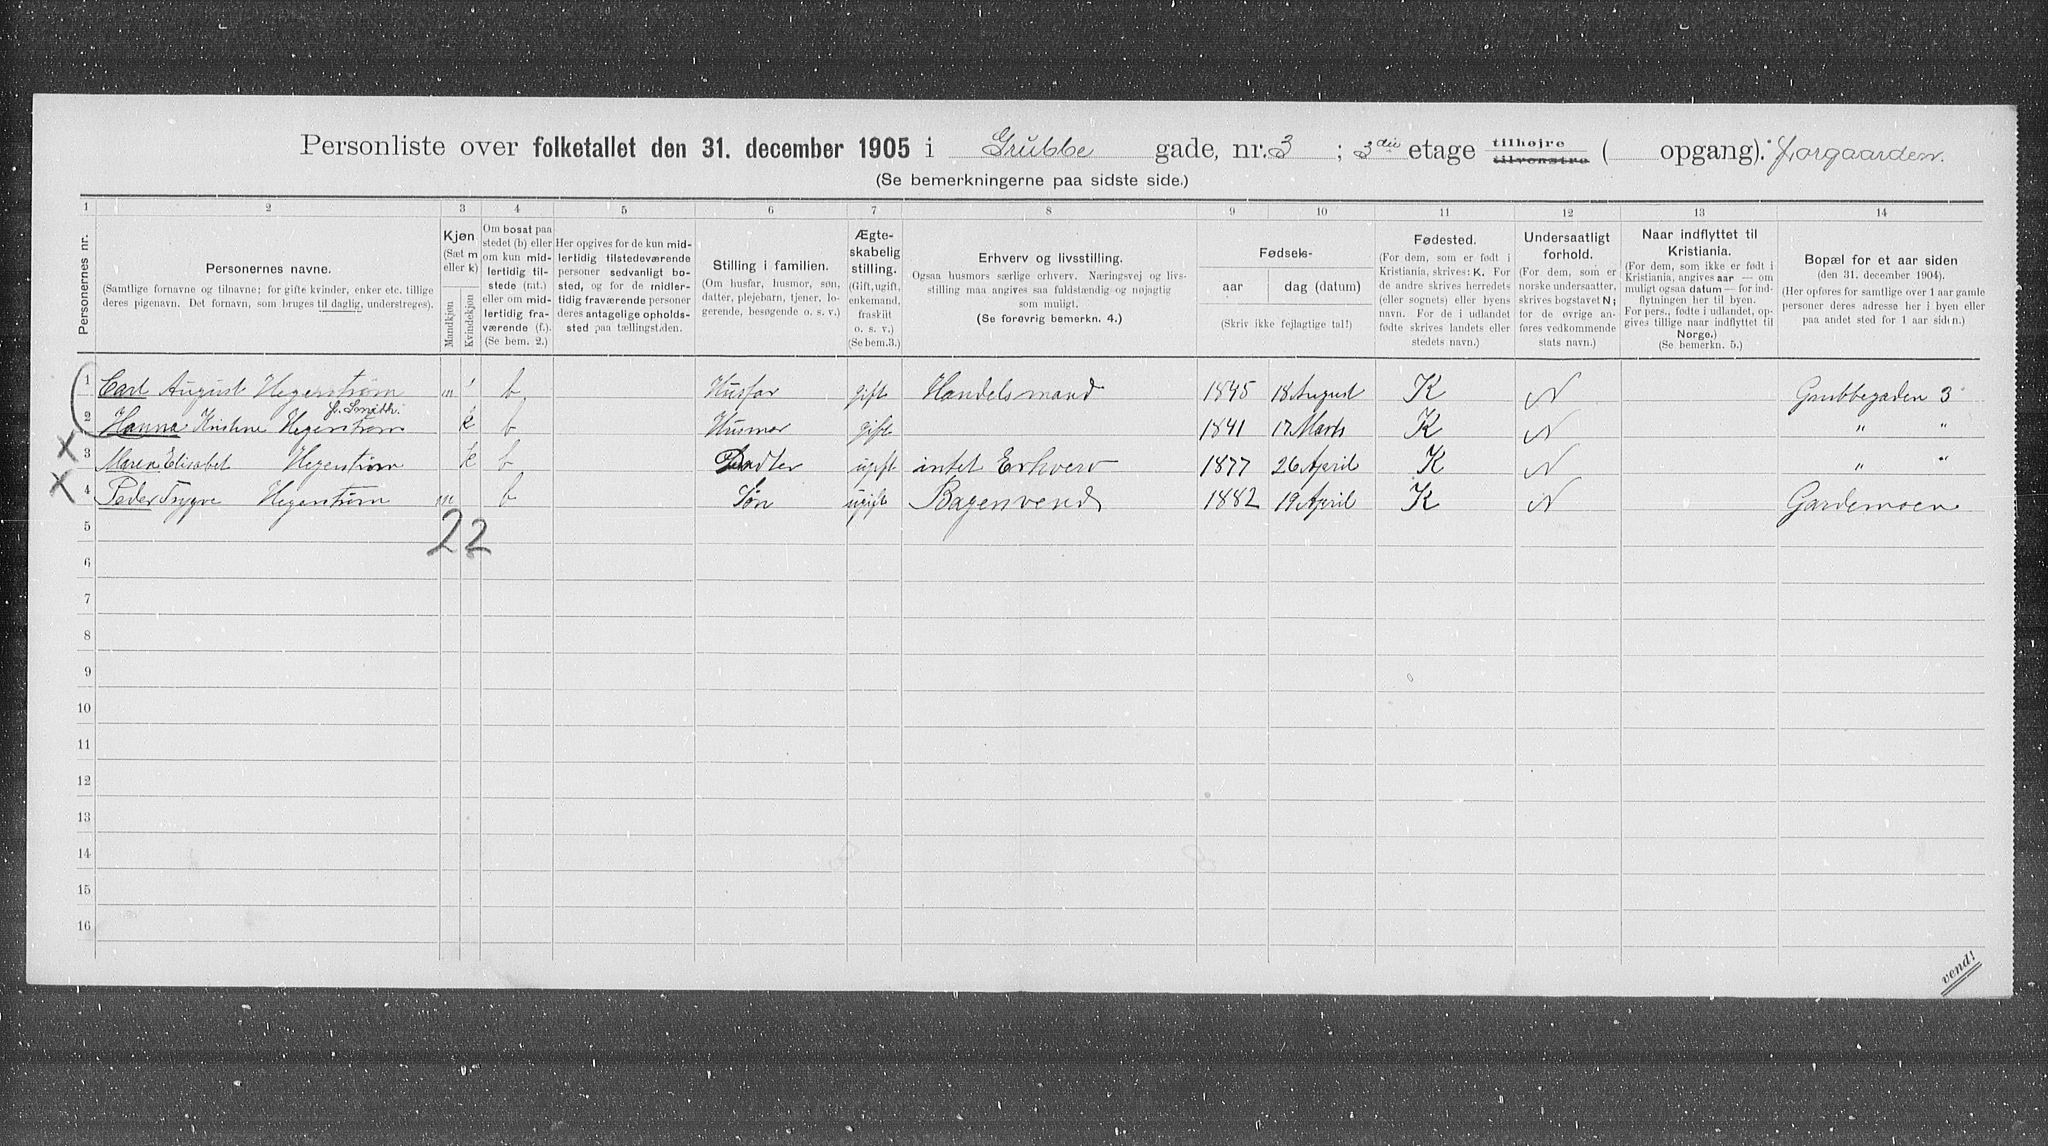 Personliste over folketallet den 31. december 1905 i Grubbe gade, nr. 3 ; 3die etage tilhøjre tilvenstre ( opgang). Forgaarden.
(Se bemerkningerne paa sidste side.)
1 2 3 4 5 6 7 8 9 10 11 12 13 14
Personernes nr.
Personernes navne.
(Samtlige fornavne og tilnavne; for gifte kvinder, enker etc. tillige
deres pigenavn. Det fornavn, som bruges til daglig, understreges).
Kjøn
(Sæt m
eller k)
Mandkjøn
Kvindekjøn
Om bosat paa
stedet (b) eller
om kun mid-
lertidig til-
stede (mt.)
eller om mid-
lertidig fra-
værende (f.).
(Se bem. 2.)
Her opgives for de kun mid-
lertidig tilstedeværende
personer sedvanligt bo-
sted, og for de midler-
tidig fraværende personer
deres antagelige opholds-
sted paa tællingstiden.
Stilling i familien.
(Om husfar, husmor, søn,
datter, plejebarn, tjener, lo-
gerende, besøgende o. s. v.)
Ægte-
skabelig
stilling.
(Gift, ugift,
enkemand,
fraskilt
o. s. v.)
(Se bem. 3.)
Erhverv og livsstilling.
Ogsaa husmors særlige erhverv. Næringsvej og livs-
stilling maa angives saa fuldstændig og nøjagtig
som muligt.
(Se forøvrig bemerkn. 4.)
Fødsels-
aar dag (datum)
(Skriv ikke fejlagtige tal!)
Fødested.
(For dem, som er født i
Kristiania, skrives: K. For
de andre skrives herredets
(eller sognets) eller byens
navn. For de i udlandet
fødte skrives landets eller
stedets navn.)
Undersaatligt
forhold.
(For dem, som er
norske undersaatter,
skrives bogstavet N;
for de øvrige an-
føres vedkommende
stats navn.)
Naar indflyttet til
Kristiania.
(For dem, som ikke er født i
Kristiania, angives aar — om
muligt ogsaa datum — for ind-
flytningen her til byen.
For pers., fødte i udlandet, op-
gives tillige naar indflyttet til
Norge.)
(Se bemerkn. 5.)
Bopæl for et aar siden
(den 31. december 1904).
(Her opføres for samtlige over 1 aar gamle
personer deres adresse her i byen eller
paa andet sted for 1 aar siden.)
1 Carl August Hegerstrøm m b Husfar gift Handelsmand 1845 18 August K N Grubbegaden 3
f. Smith.
2 Hanna Kristine Hegerstrøm k b Husmor gift 1841 17 Marts K N " "
3 Maren Elisabet Hegerstrøm k b Dadter ugift intet Erhverv 1877 26 April K N " "
4 Peder Trygve Hegerstrøm m b Søn ugift Bagersvend 1882 19 April K N Gardemoen
2 2
5
6
7
8
9
10
11
12
13
14
15
16
vend!